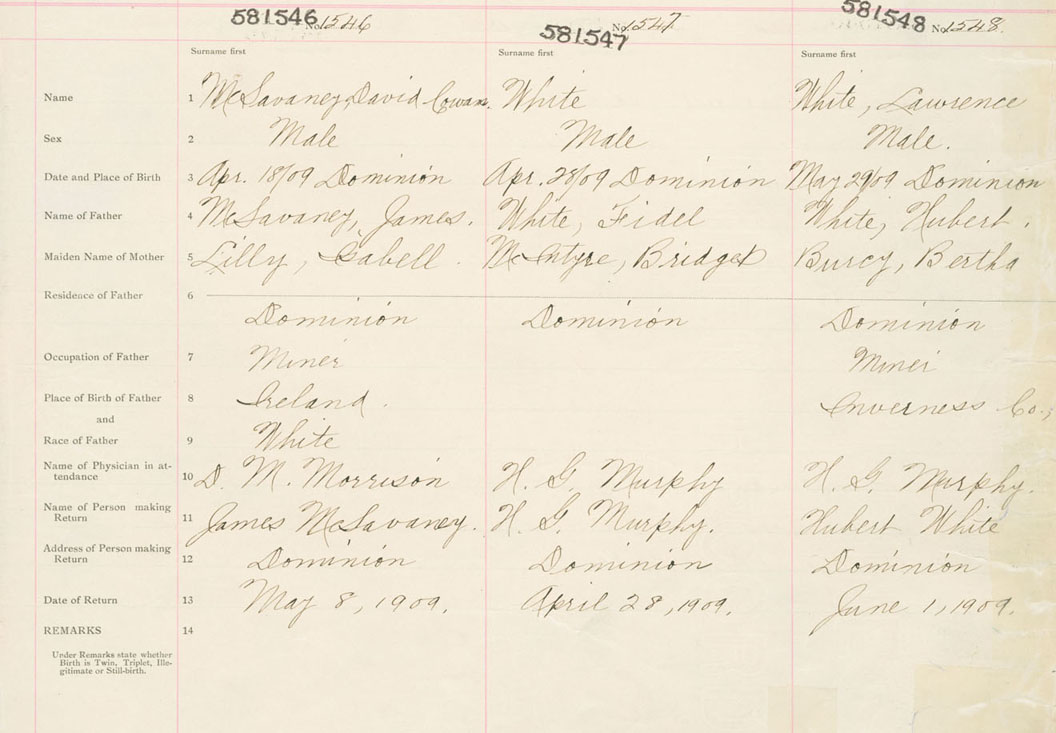 581546 No. 1546
581547 No. 1547
581548 No. 1548.
Surname first Surname first Surname first
Name 1 McSavaney, David Cowan. White White, Lawrence
Sex 2 Male Male Male.
Date and Place of Birth 3 Apr. 18/09 Dominion Apr. 28/09 Dominion May 29/09 Dominion
Name of Father 4 McSavaney, James. White, Fidel White, Hubert.
Maiden Name of Mother 5 Lilly, Isabell. McIntyre, Bridget Burcy, Bertha
Residence of Father 6
Dominion Dominion Dominion
Occupation of Father 7 Miner Miner
Place of Birth of Father 8 Ireland. Inverness Co.,
and
Race of Father 9 White
Name of Physician in at-
tendance 10 D. M. Morrison H. G. Murphy H. G. Murphy.
Name of Person making
Return 11 James McSavaney. H. G. Murphy. Hubert White
Address of Person making
Return 12 Dominion Dominion Dominion
Date of Return 13 May 8, 1909. April 28, 1909. June 1, 1909.
REMARKS 14
Under Remarks state whether
Birth is Twin, Triplet, Ille-
gitimate or Still-birth.